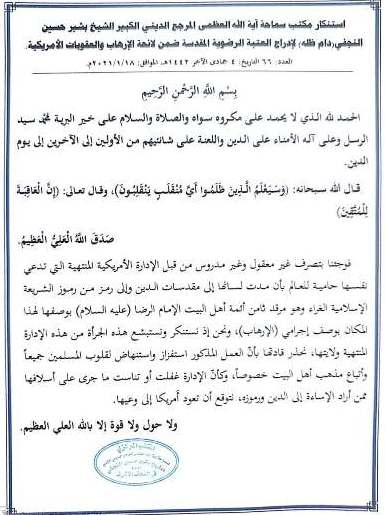 استنكار مكتب سماحة آية الله العظمى المرجع الديني الكبير الشيخ بشير حسين
النجفي(دام ظله)لإدراج العتبة الرضوية المقدسة ضمن لائحة الإرهاب والعقوبات الأمريكية.
العدد: ٦٦ التاريخ: ٤ جمادى الآخر ١٤٤٢هـ الموافق: ٢٠٢١/١/١٨م
بِسْمِ اللَّهِ الرَّحْمَنِ الرَّحِيمِ
الحمد لله الذي لا يحمد على مكروه سواه والصلاة والسلام على خير البرية محمد سيد
الرسل وعلى آله الأمناء على الدين واللعنة على شانئيهم من الأولين إلى الآخرين إلى يوم
الدين.
قال الله سبحانه: (وَسَيَعْلَمُ الَّذِينَ ظَلَمُوا أَيَّ مُنقَلَبٍ يَنقَلِبُونَ)، وقال تعالى: (إِنَّ الْعَاقِبَةَ
لِلْمُتَّقِينَ)
صَدَقَ اللَّهُ الْعَلِيُّ الْعَظِيمُ.
فوجئنا بتصرف غير معقول وغير مدروس من قبل الإدارة الأمريكية المنتهية التي تدعي
نفسها حامية للعالم بأن مدت لسانها إلى مقدسات الدين وإلى رمز من رموز الشريعة
الإسلامية الغراء وهو مرقد ثامن أئمة أهل البيت الإمام الرضا (عليه السلام) بوصفها لهذا
المكان بوصف إجرامي (الإرهاب)، ونحن إذ نستنكر ونستبشع هذه الجرأة من هذه الإدارة
المنتهية ولايتها، نحذر قادتها بأنّ العمل المذكور استفزاز واستنهاض لقلوب المسلمين جميعاً
وأتباع مذهب أهل البيت خصوصاً، وكأنّ الإدارة غفلت أو تناست ما جرى على أسلافها
ممن أراد الإساءة إلى الدين ورموزه، نتوقع أن تعود أمريكا إلى وعيها.
ولا حول ولا قوة إلا بالله العلي العظيم.